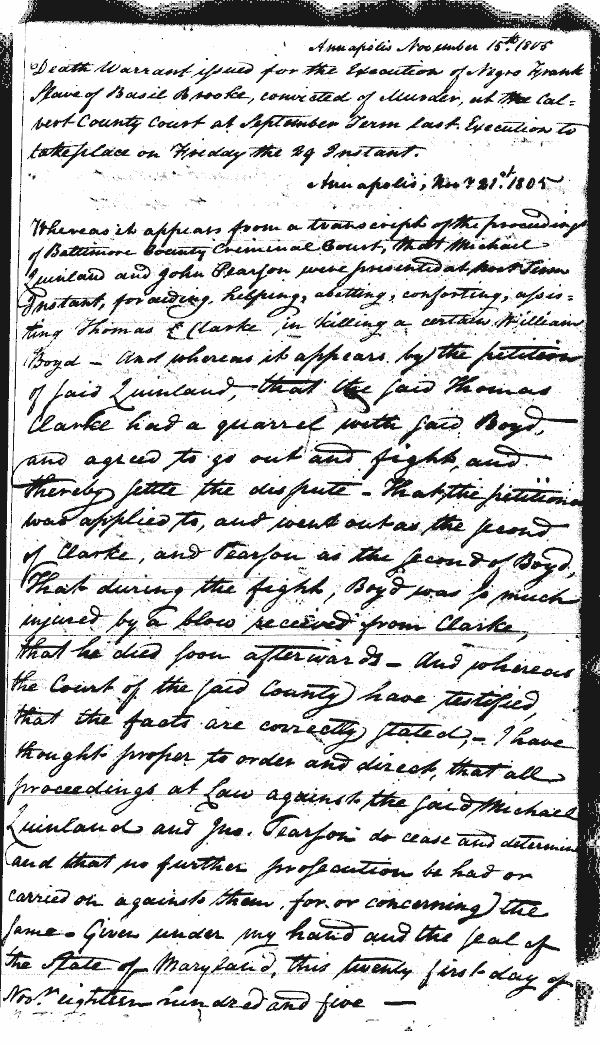 Annapolis November 15th. 1805
Death Warrant issued for the Execution of Negro Frank
Slave of Basil Brooke, convicted of Murder, at the Cal=
vert County Court at September Term last. Execution to
take place on Freday the 29 Instant.
Annapolis, Nov.r 21st. 1805
Whereas it appears from a transcript of the proceeding
of Baltimore County Criminal Court, that Michael
Quinland and John Pearson were presented at Term
Instant, for aiding, helping, abetting, comforting, assis=
ting Thomas Clarke in killing a certain William
Boyd - And whereas it appears by the petition
of said Quinland, that the said Thomas
Clarke had a quarrel with said Boyd,
and agreed to go out and fight, and
thereby settle the dispute - That the petitioner
was applied to, and went out as the second
of Clarke, and Pearson as the second of Boyd,
That during the fight, Boyd was so much
injured by a blow received from Clarke,
that he died soon afterwards - And whereas
the Court of the said County have testified,
that the facts are correctly stated, - I have
thought proper to order and direct, that all
proceedings at Law against the said Michael
Quinland and Jno. Pearson do cease and determine
and that no further prosecution be had or
carried on against them, for or concerning the
same - Given under my hand and the seal of
the State of Maryland, this twenty first day of
Nov.r eighteen hundred and five -